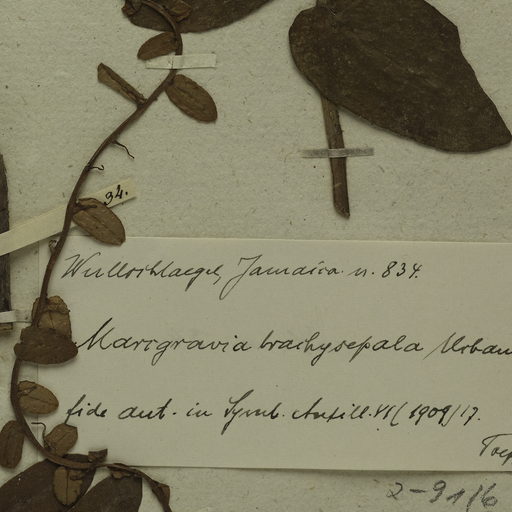 34.
Wullschlaegel, Jamaica n. 834.
Marcgravia brachysepala Urban
fide aut. in Symb. Antill. VI (1909) 17.